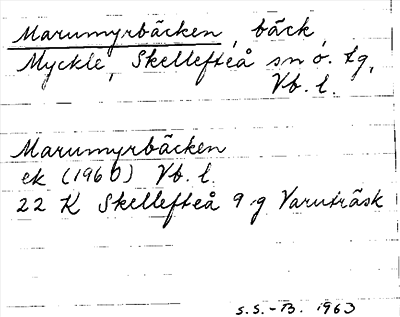 Marumyrbäcken, bäck,
Myckle, Skellefteå sn o. tg,
Vb. l.
Marumyrbäcken
ek (1960) Vb. l.
22 K Skellefteå 9 g Varuträsk
S.S.-B. 1963